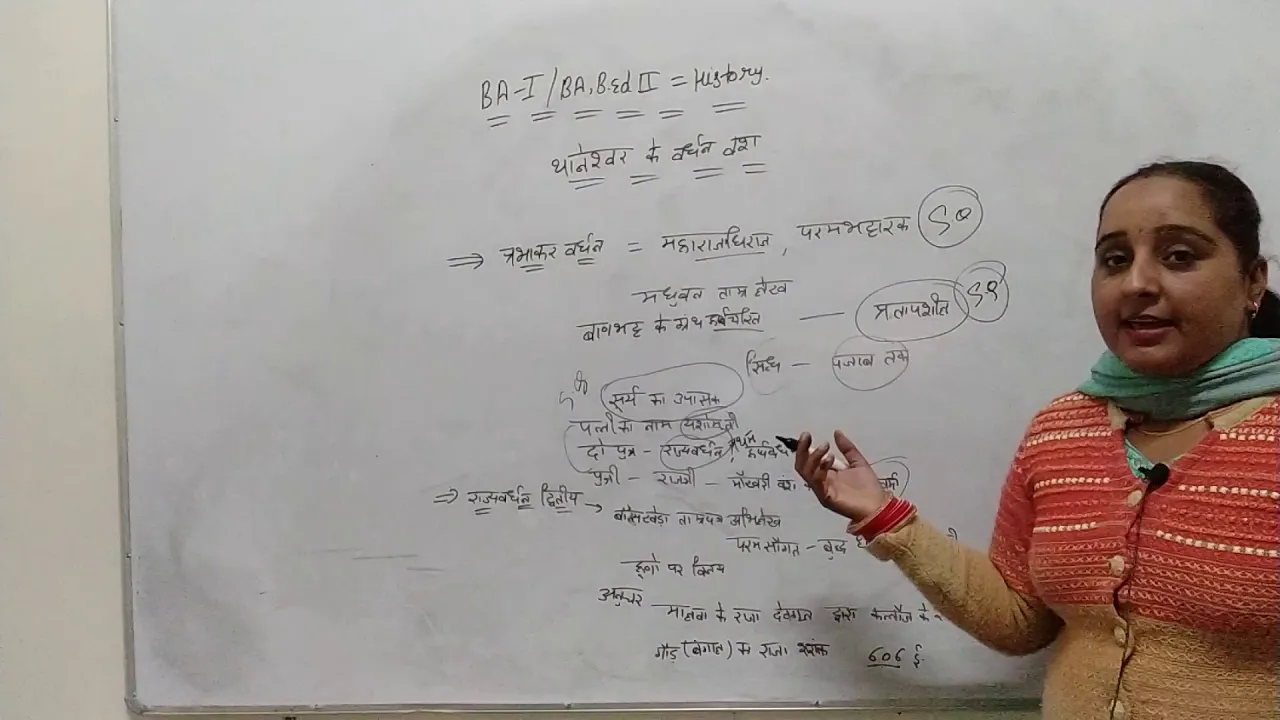 BA-I / BA, B.Ed II = History.
थानेश्वर के वर्धन वंश
⇒ प्रभाकर वर्धन = महाराजाधिराज, परमभट्टारक SQ
मधुवन ताम्र लेख
बाणभट्ट के ग्रंथ हर्षचरित — प्रतापशील SQ
सिन्ध — पंजाब तक
सूर्य का उपासक
पत्नी का नाम यशोमती
दो पुत्र - राज्यवर्धन,
पुत्री - राजश्री - मौखरी वंश
⇒ राज्यवर्धन द्वितीय → बाँसखेड़ा ताम्रपत्र अभिलेख
परम सौगत - बुद्ध
हूणों पर विजय
मालवा के राजा देवगुप्त द्वारा कन्नौज के
गौड़ (बंगाल) के राजा शशांक 606 ई.